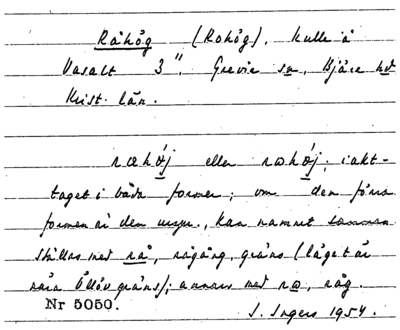 Råhög (Rohög), kulle å
Vasalt 3", Grevie sn, Bjäre hd
Krist. län.
ræhǿj eller rωhǿj; iakt-
taget i båda former; om den förra
formen är den urspr., kan namnet samman
ställas med rå, rågång, gräns (läget är
nära Ö Ulöv gräns); annars med rω, råg.
Nr 5050.
S. Ingers 1954.